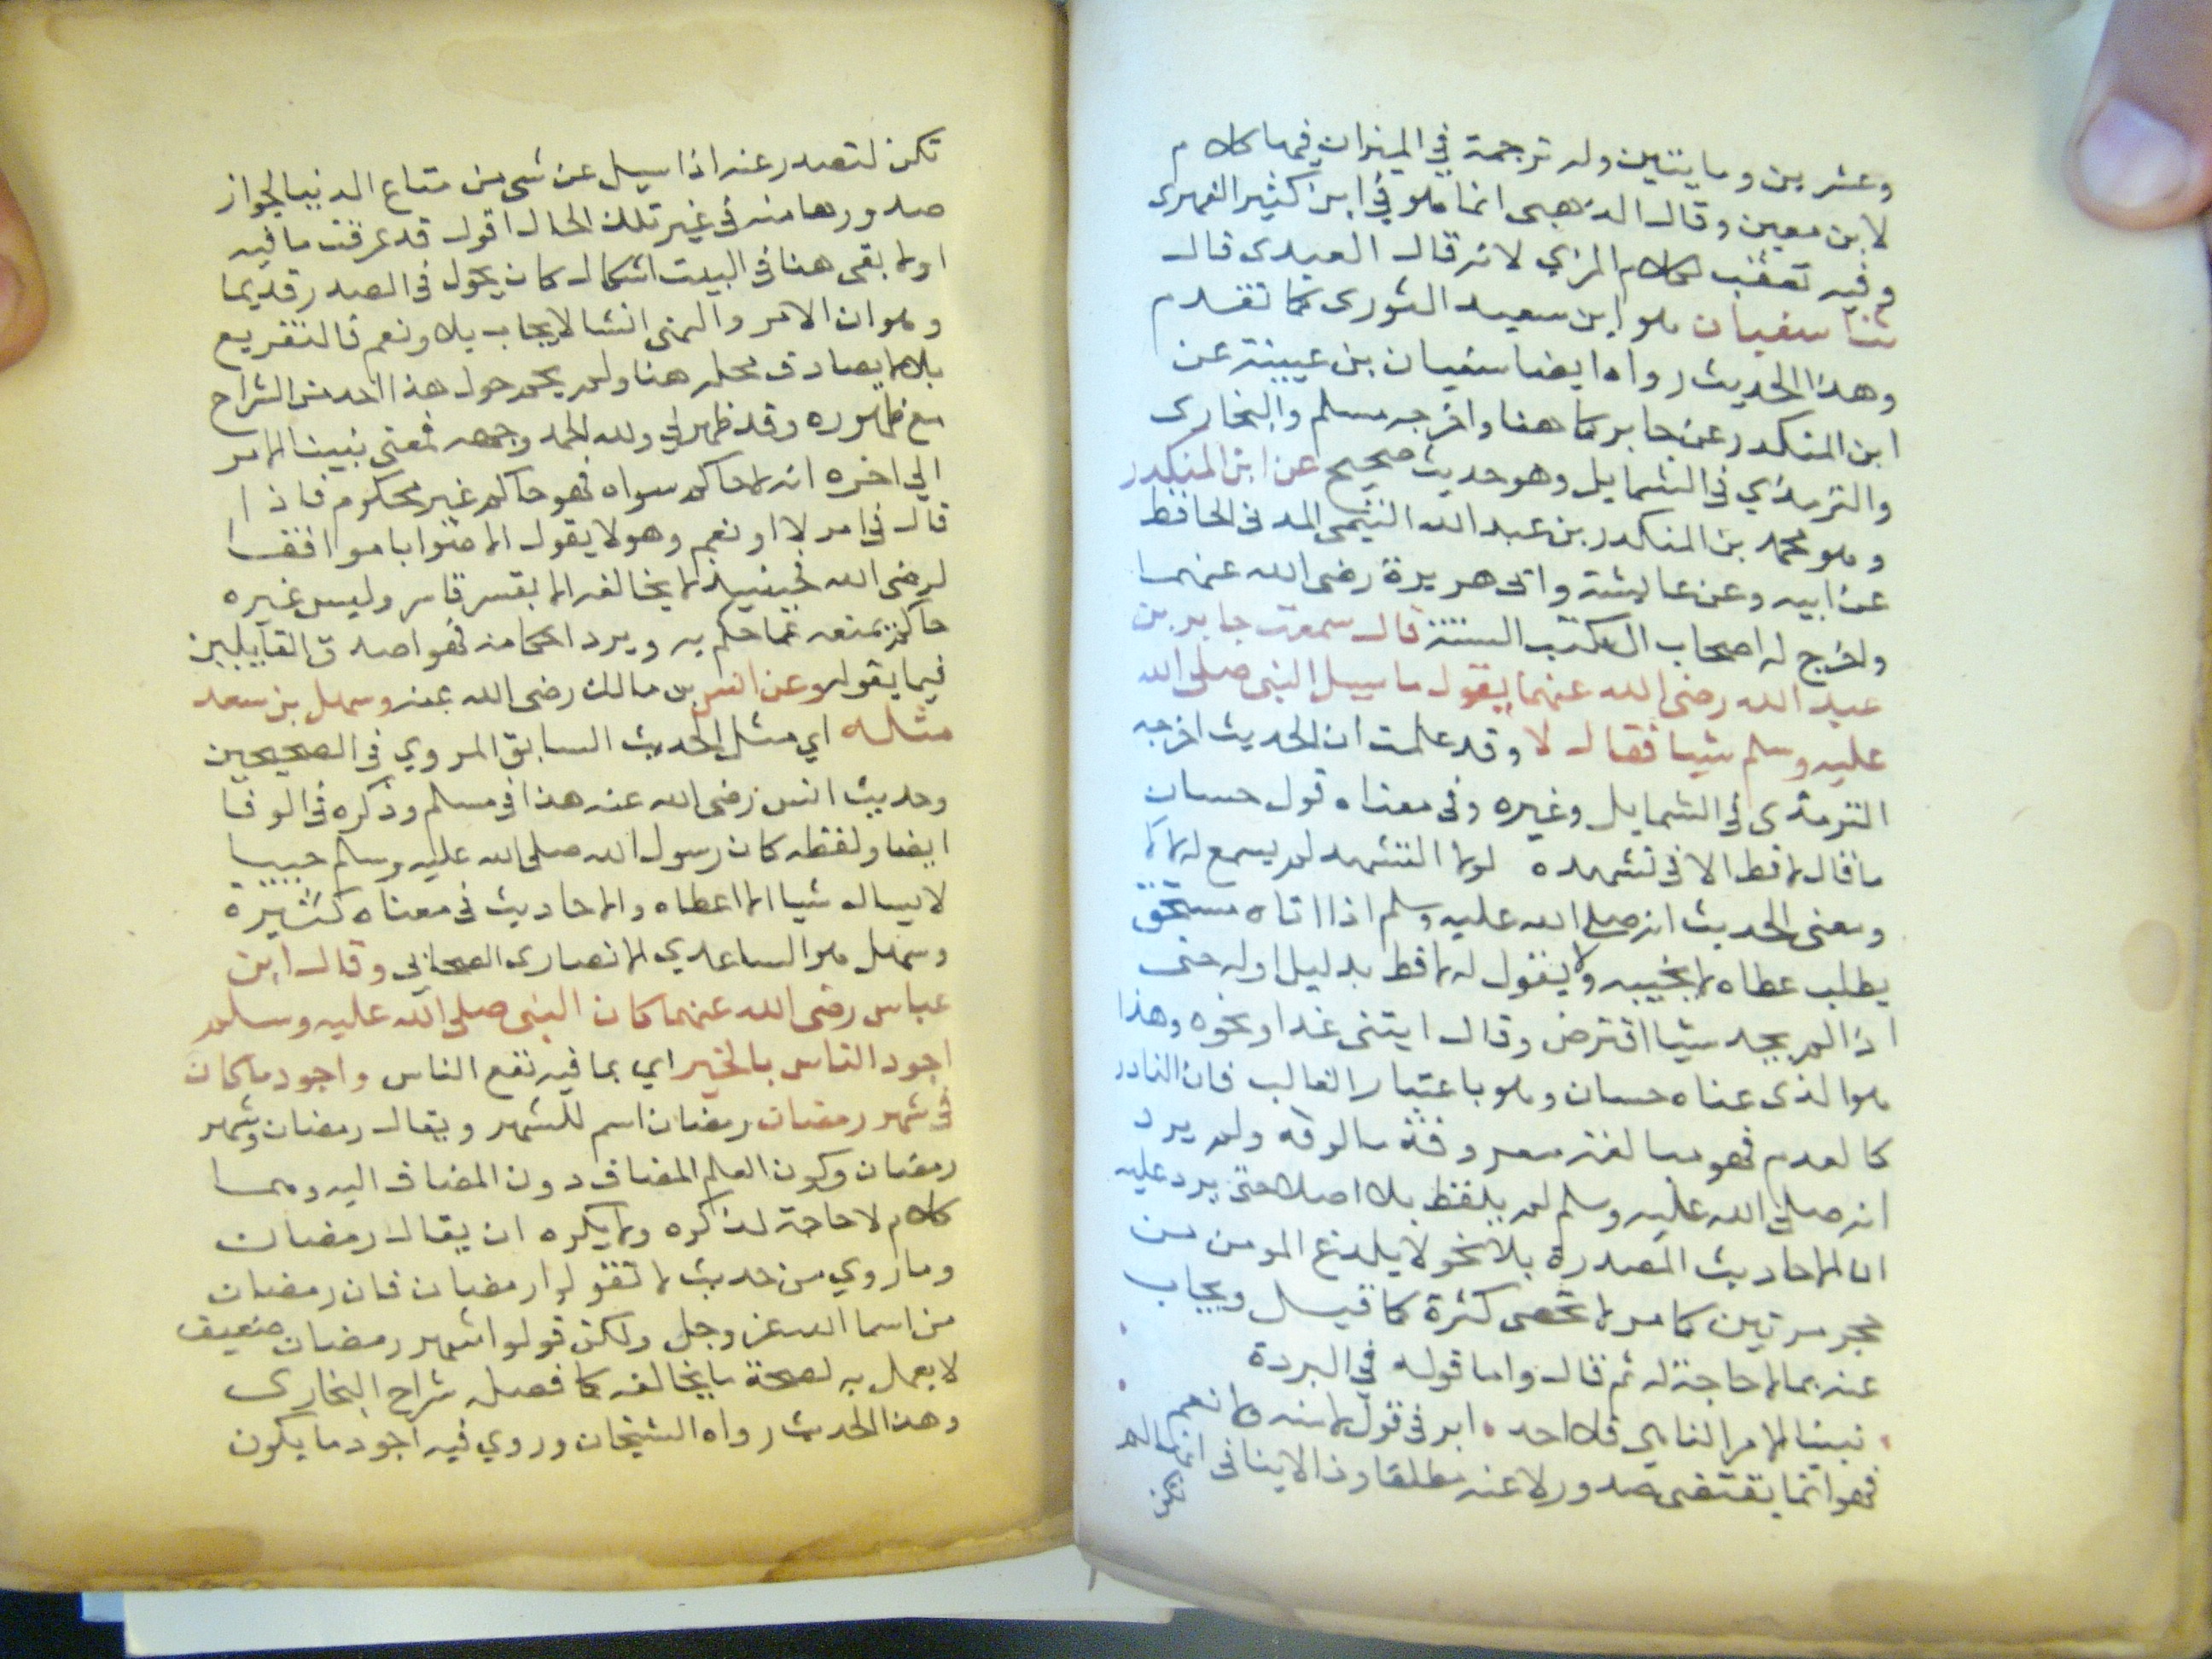 وعشرين ومايتين وله ترجمة في الميزان فيها كلام
لابن معين وقال الذهبي انما هو في ابن كثير الفهري
وفيه تعقب لكلام المزي لانه قال العبدي قال
ثنا سفيان هو ابن سعيد الثوري كما تقدم
وهذا الحديث رواه ايضا سفيان بن عيينة عن
ابن المنكدر عن جابر كما هنا واخرجه مسلم والبخاري
والترمذي في الشمايل وهو حديث صحيح عن ابن المنكدر
وهو محمد بن المنكدر بن عبد الله التيمي المدني الحافظ
عن ابيه وعن عايشة وابي هريرة رضي الله عنهما
واخرج له اصحاب الكتب الستة قال سمعت جابر بن
عبد الله رضي الله عنهما يقول ما سيل النبي صلى الله
عليه وسلم شيا فقال لا وقد علمت ان الحديث اخرجه
الترمذي في الشمايل وغيره وفي معناه قول حسان
ما قال لا قط الا في تشهده لولا التشهد لم يسمع له لا لا
ومعنى الحديث انه صلى الله عليه وسلم اذا اتاه مستحق
يطلب عطاه لا يخيبه ولا يقول له لا قط بدليل اوله حتى
اذا لم يجد شيا اقترض وقال ايتني غدا ونحوه وهذا
هو الذي عناه حسان وهو باعتبار الغالب فان النادر
كالعدم فهو مبالغة معروفة مالوفة ولم يرد
انه صلى الله عليه وسلم لم يلفظ بلا اصلا حتى يرد عليه
ان الاحاديث المصدرة بلا نحو لا يلدغ المومن من
حجر مرتين كما مر لا تحصى كثرة كما قيل ويجاب
عنه بما لا حاجة له ثم قال واما قوله في البردة
نبينا الامر الناهي فلا احد ابر في قول لا منه ولا نعم
فهو انما يقتضي صدور لا عنه مطلقا وذا لا ينافي انها لم
تكن
تكن لتصدر عنه اذا سيل عن شى من متاع الدنيا لجواز
صدورها منه في غير تلك الحال اقول قد عرفت ما فيه
اولا بقي هنا في البيت اشكال كان يجول في الصدر قديما
وهو ان الامر والنهي انشا لا يجاب بلا ونعم فالتفريع
بلا لا يصادف محله هنا ولم يحم حول هذا احد من الشراح
مع ظهوره وقد ظهر لي ولله الحمد وجهه فمعنى نبينا الامر
الى اخره انه لا حاكم سواه فهو حاكم غير محكوم فاذا
قال في امر لا او نعم وهو لا يقول الا صوابا موافقا
لرضى الله فحينيذ لا يخالفه الا بقسر قاسر وليس غيره
حاكم يمنعه عما حكم به ويرد احكامه فهو اصدق القايلين
فيما يقوله وعن انس بن مالك رضي الله عنه وسهل بن سعد
مثله اي مثل الحديث السابق المروي في الصحيحين
وحديث انس رضي الله عنه هذا في مسلم وذكره في الوفا
ايضا ولفظه كان رسول الله صلى الله عليه وسلم حييا
لا يسال شيا الا اعطاه والاحاديث في معناه كثيرة
وسهل هو الساعدي الانصاري الصحابي وقال ابن
عباس رضي الله عنهما كان النبي صلى الله عليه وسلم
اجود الناس بالخير اي بما فيه نفع الناس واجود ما كان
في شهر رمضان رمضان اسم للشهر ويقال رمضان وشهر
رمضان وكون العلم المضاف دون المضاف اليه وهما
كلام لا حاجة لذكره ولا يكره ان يقال رمضان
وما روي من حديث لا تقولوا رمضان فان رمضان
من اسما الله عز وجل ولكن قولوا شهر رمضان ضعيف
لا يعمل به لصحة ما يخالفه كما فصله شراح البخاري
وهذا الحديث رواه الشيخان وروي فيه اجود ما يكون